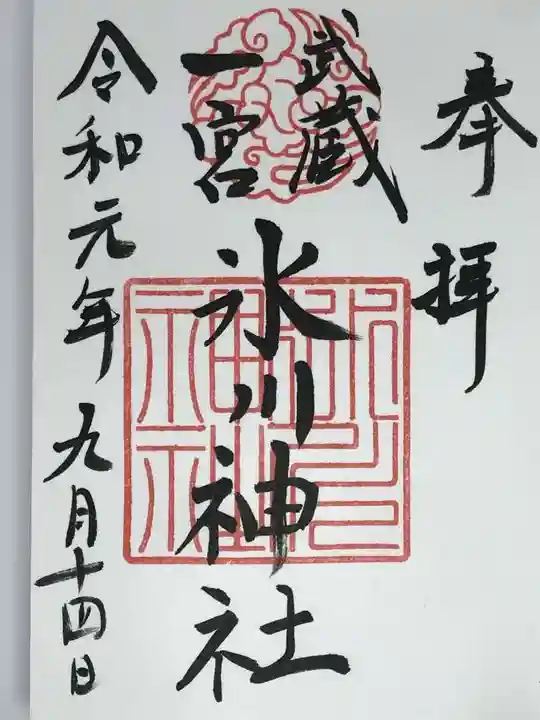 奉拝
武蔵
一宮
氷川神社
令和元年九月十四日
氷川
神社